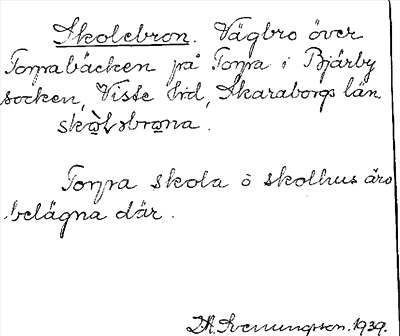 Skolebron. Vägbro över
Torpabäcken på Torpa i Bjärby
socken, Viste hd, Skaraborgs län
skòlәbrona.
Torpa skola o skolhus äro
belägna där.
D.A. Svenungsson. 1939.